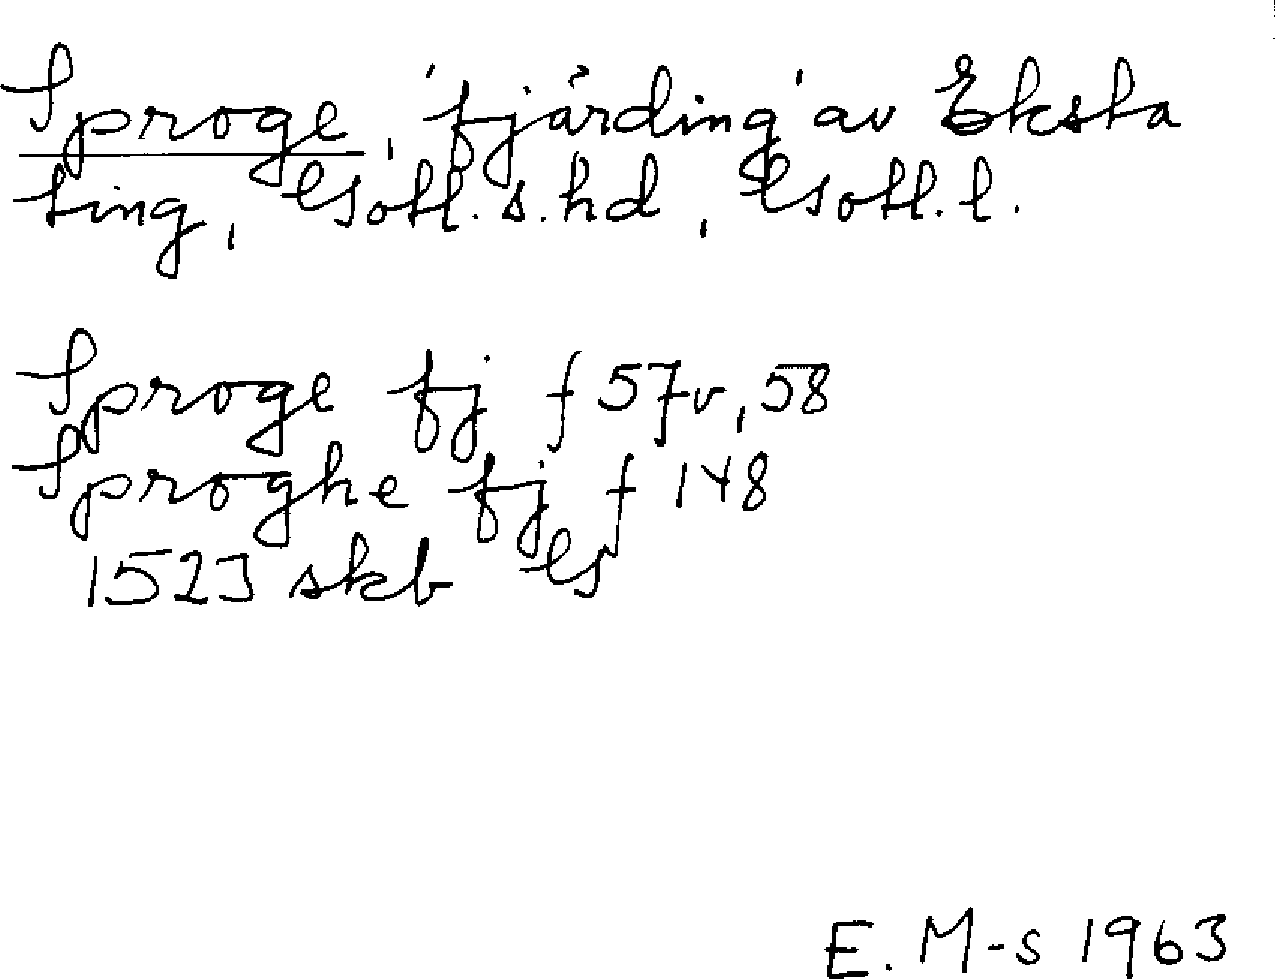 Sproge, 'fjärding' av Eksta
ting, Gotl. s. hd, Gotl. l.
Sproge fj f 57v, 58
Sproghe fj f 148
1523 skb G
E. M-s 1963